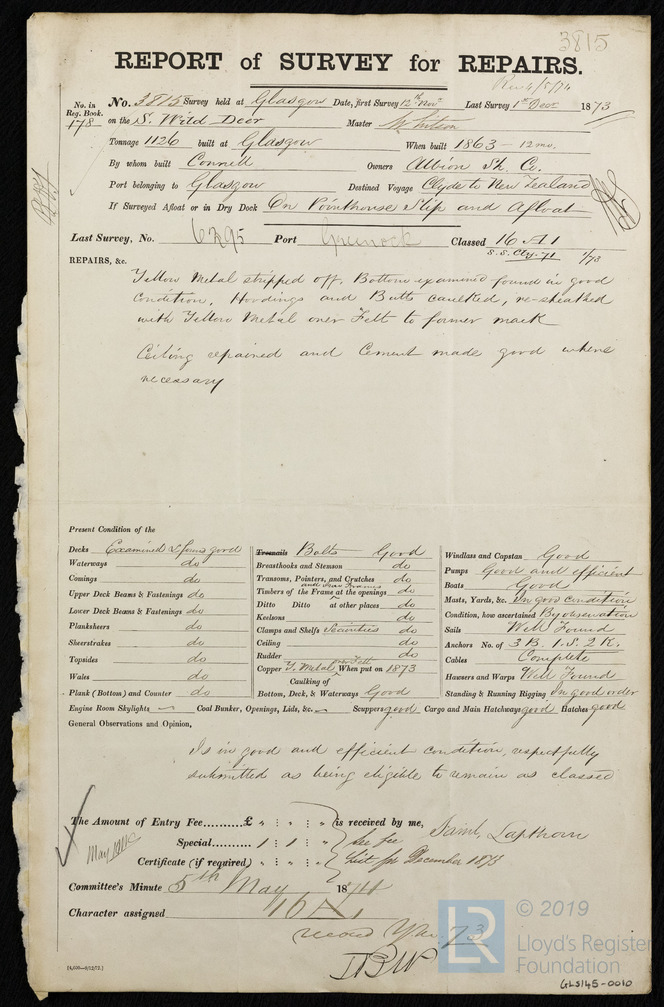 3815
REPORT of SURVEY for REPAIRS.
Rec 4/5/74
No. in Reg. Book. No. 3815 Survey held at Glasgow Date, first Survey 12th Nov Last Survey 1st Decr 1873
178 on the S. Wild Deer Master
Tonnage 1126 built at Glasgow When built 1863 - 12 mo.
By whom built Connell Owners Albion Sh. Co.
Port belonging to Glasgow Destined Voyage Clyde to New Zealand
If Surveyed Afloat or in Dry Dock On Pointhouse Slip and Afloat
Last Survey, No. 6295 Port Greenock Classed 16 A1
S.S. Cly. 71 1/73
REPAIRS, &c.
Yellow Metal stripped off. Bottom examined found in good
condition, Hoodings and Butts caulked, re-sheathed
with Yellow Metal over Felt to former mark
Ceiling repaired and Cement made good where
necessary
Present Condition of the
Decks Examined & found good
Waterways do
Comings do
Upper Deck Beams & Fastenings do
Lower Deck Beams & Fastenings do
Planksheers do
Sheerstrakes do
Topsides do
Wales do
Plank (Bottom) and Counter do
Treenails Bolts Good
Breasthooks and Stemson do
Transoms, Pointers, and Crutches do
and Iron Frames
Timbers of the Frame at the openings do
Ditto Ditto at other places do
Keelsons do
Clamps and Shelfs Securities do
Ceiling do
Rudder do
Copper Y. Metal over Felt When put on 1873
Caulking of
Bottom, Deck, & Waterways Good
Windlass and Capstan Good
Pumps Good and efficient
Boats Good
Masts, Yards, &c. In good condition
Condition, how ascertained By observation
Sails Well Found
Anchors No. of 3 B. 1 S. 2 K.
Cables Complete
Hawsers and Warps Well Found
Standing & Running Rigging In good order
Engine Room Skylights — Coal Bunker, Openings, Lids, &c. — Scuppers good Cargo and Main Hatchways good Hatches good
General Observations and Opinion,
Is in good and efficient condition, respectfully
submitted as being eligible to remain as classed
The Amount of Entry Fee.........£ " : " : " is received by me,
Special......... 1 : 1 : " See fee Saml. Lapthorn
Certificate (if required) " : " : " List for December 1873
Committee's Minute 5th May 1874
Character assigned 16 A1
record Y.M. 73
(4,500—8/12/72.)
© 2019
LR
Lloyd's Register
Foundation
GLS145-0010